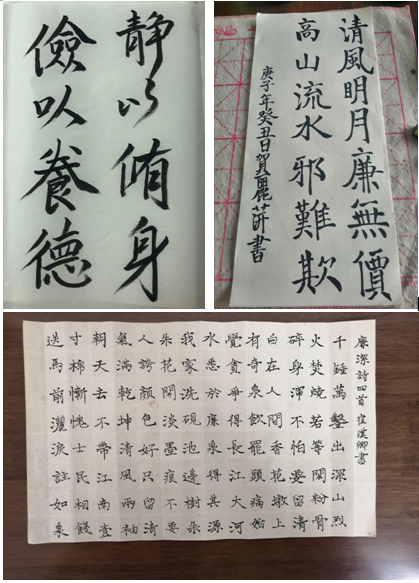 静以脩身
儉以養德
清風明月廉無價
高山流水邪難欺
庚子年癸丑日賀麗萍書
廉潔詩四首 崔漢卿書
千錘萬鑿出深山烈
火焚燒若等閑粉骨
碎身渾不怕要留清
白在人間香花墩上
有奇泉飲罷頭痛始
覺貪爭得長江大河
水悉於廉泉得其源
我家洗硯池邊樹朵
朵花開淡墨痕不要
人誇顏色好只留清
氣滿乾坤清風兩袖
朝天去不帶江南壹
寸棉慚愧士民相餞
送馬前灑淚註如泉